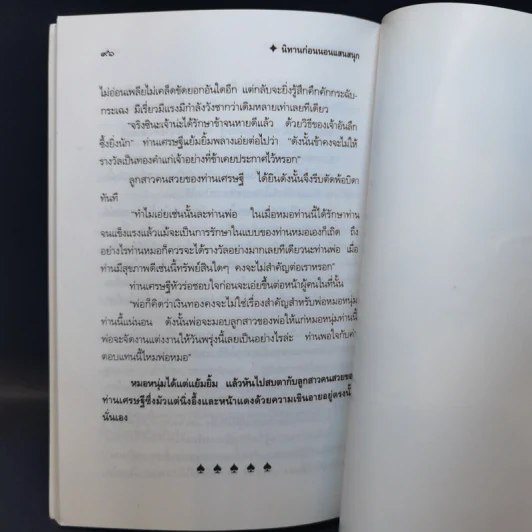 ๙๖
✦ นิทานก่อนนอนแสนสนุก
ไม่อ่อนเพลียไม่เคล็ดขัดยอกอันใดอีก แต่กลับจะยิ่งรู้สึกคึกคักกระฉับ-
กระเฉง มีเรี่ยวมีแรงมีกำลังวังชากว่าเดิมหลายเท่าเลยทีเดียว
"จริงซินะเจ้าน่ะได้รักษาข้าจนหายดีแล้ว ด้วยวิธีของเจ้าอันลึก
ซึ้งยิ่งนัก" ท่านเศรษฐีแย้มยิ้มพลางเอ่ยต่อไปว่า "ดังนั้นข้าคงจะไม่ให้
รางวัลเป็นทองคำแก่เจ้าอย่างที่ข้าเคยประกาศไว้หรอก"
ลูกสาวคนสวยของท่านเศรษฐี ได้ยินดังนั้นจึงรีบตัดพ้อบิดา
ทันที
"ทำไมเอ่ยเช่นนั้นละท่านพ่อ ในเมื่อหมอท่านนี้ได้รักษาท่าน
จนแข็งแรงแล้วแม้จะเป็นการรักษาในแบบของท่านหมอเองก็เถิด ถึง
อย่างไรท่านหมอก็ควรจะได้รางวัลอย่างมากเลยทีเดียวนะท่านพ่อ เมื่อ
ท่านมีสุขภาพดีเช่นนี้ทรัพย์สินใดๆ คงจะไม่สำคัญต่อเราหรอก"
ท่านเศรษฐีหัวร่อชอบใจก่อนจะเอ่ยขึ้นต่อหน้าผู้คนในที่นั้น
"พ่อก็คิดว่าเงินทองคงจะไม่ใช่เรื่องสำคัญสำหรับพ่อหมอหนุ่ม
ท่านนี้แน่นอน ดังนั้นพ่อจะมอบลูกสาวของพ่อให้แก่หมอหนุ่มท่านนี้
พ่อจะจัดงานแต่งงานให้วันพรุ่งนี้เลยเป็นอย่างไรล่ะ ท่านพอใจกับค่า
ตอบแทนนี้ไหมพ่อหมอ"
หมอหนุ่มได้แต่แย้มยิ้ม แล้วหันไปสบตากับลูกสาวคนสวยของ
ท่านเศรษฐีซึ่งมัวแต่นิ่งอึ้งและหน้าแดงด้วยความเขินอายอยู่ตรงนั้
นั่นเอง
♠ ♠ ♠ ♠ ♠